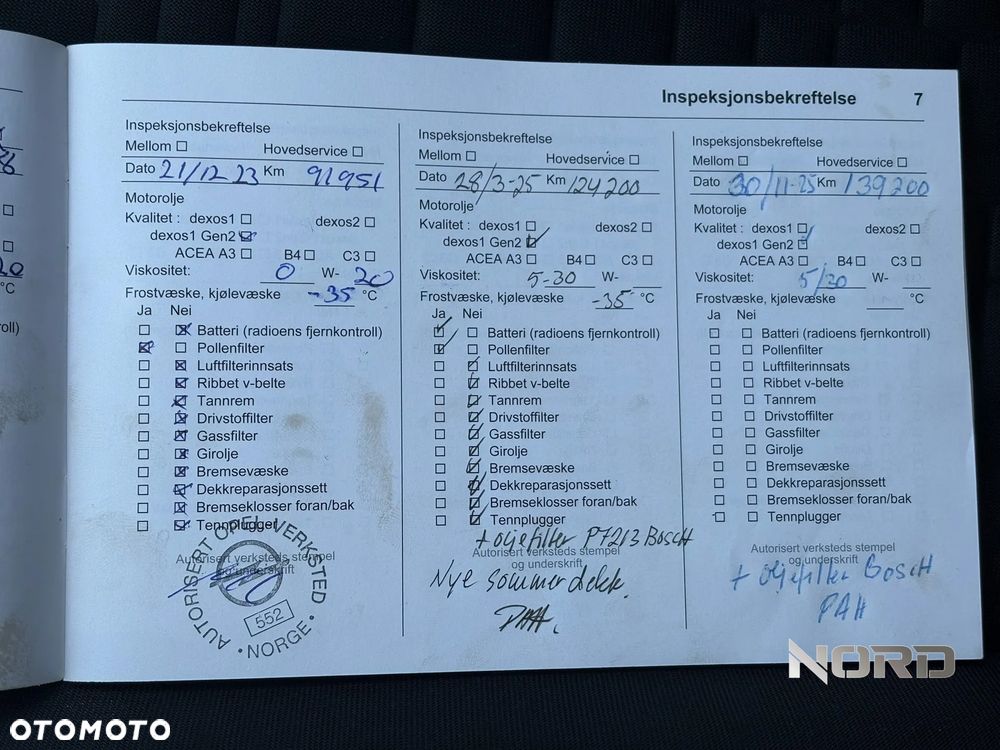 Inspeksjonsbekreftelse 7
Inspeksjonsbekreftelse
Mellom ☐ Hovedservice ☐
Dato 21/12 23 Km 91951
Motorolje
Kvalitet : dexos1 ☐ dexos2 ☐
dexos1 Gen2 ☑
ACEA A3 ☐ B4 ☐ C3 ☐
Viskositet: 0 W- 20
Frostvæske, kjølevæske -35 °C
Ja Nei
☐ ☒ Batteri (radioens fjernkontroll)
☒ ☐ Pollenfilter
☐ ☒ Luftfilterinnsats
☐ ☒ Ribbet v-belte
☐ ☒ Tannrem
☐ ☒ Drivstoffilter
☐ ☒ Gassfilter
☐ ☒ Girolje
☐ ☒ Bremsevæske
☐ ☒ Dekkreparasjonssett
☐ ☒ Bremseklosser foran/bak
☐ ☒ Tennplugger
Autorisert verksteds stempel
og underskrift
AUTORISERT OPEL VERKSTED
552
• NORGE •
Inspeksjonsbekreftelse
Mellom ☐ Hovedservice ☐
Dato 28/3-25 Km 124200
Motorolje
Kvalitet : dexos1 ☐ dexos2 ☐
dexos1 Gen2 ☑
ACEA A3 ☐ B4 ☐ C3 ☐
Viskositet: 5-30 W-
Frostvæske, kjølevæske -35 °C
Ja Nei
☑ ☐ Batteri (radioens fjernkontroll)
☑ ☐ Pollenfilter
☐ ☑ Luftfilterinnsats
☐ ☑ Ribbet v-belte
☐ ☑ Tannrem
☐ ☑ Drivstoffilter
☐ ☑ Gassfilter
☐ ☑ Girolje
☐ ☑ Bremsevæske
☐ ☑ Dekkreparasjonssett
☐ ☑ Bremseklosser foran/bak
☐ ☑ Tennplugger
+ oljefilter P7213 Bosch
Autorisert verksteds stempel
og underskrift
Nye sommerdekk.
Inspeksjonsbekreftelse
Mellom ☐ Hovedservice ☐
Dato 30/11-25 Km 139200
Motorolje
Kvalitet : dexos1 ☐ dexos2 ☐
dexos1 Gen2 ☑
ACEA A3 ☐ B4 ☐ C3 ☐
Viskositet: 5/30 W-
Frostvæske, kjølevæske °C
Ja Nei
☐ ☐ Batteri (radioens fjernkontroll)
☐ ☐ Pollenfilter
☐ ☐ Luftfilterinnsats
☐ ☐ Ribbet v-belte
☐ ☐ Tannrem
☐ ☐ Drivstoffilter
☐ ☐ Gassfilter
☐ ☐ Girolje
☐ ☐ Bremsevæske
☐ ☐ Dekkreparasjonssett
☐ ☐ Bremseklosser foran/bak
☐ ☐ Tennplugger
Autorisert verksteds stempel
og underskrift
+ oljefilter Bosch
PAH
NORD
OTOMOTO